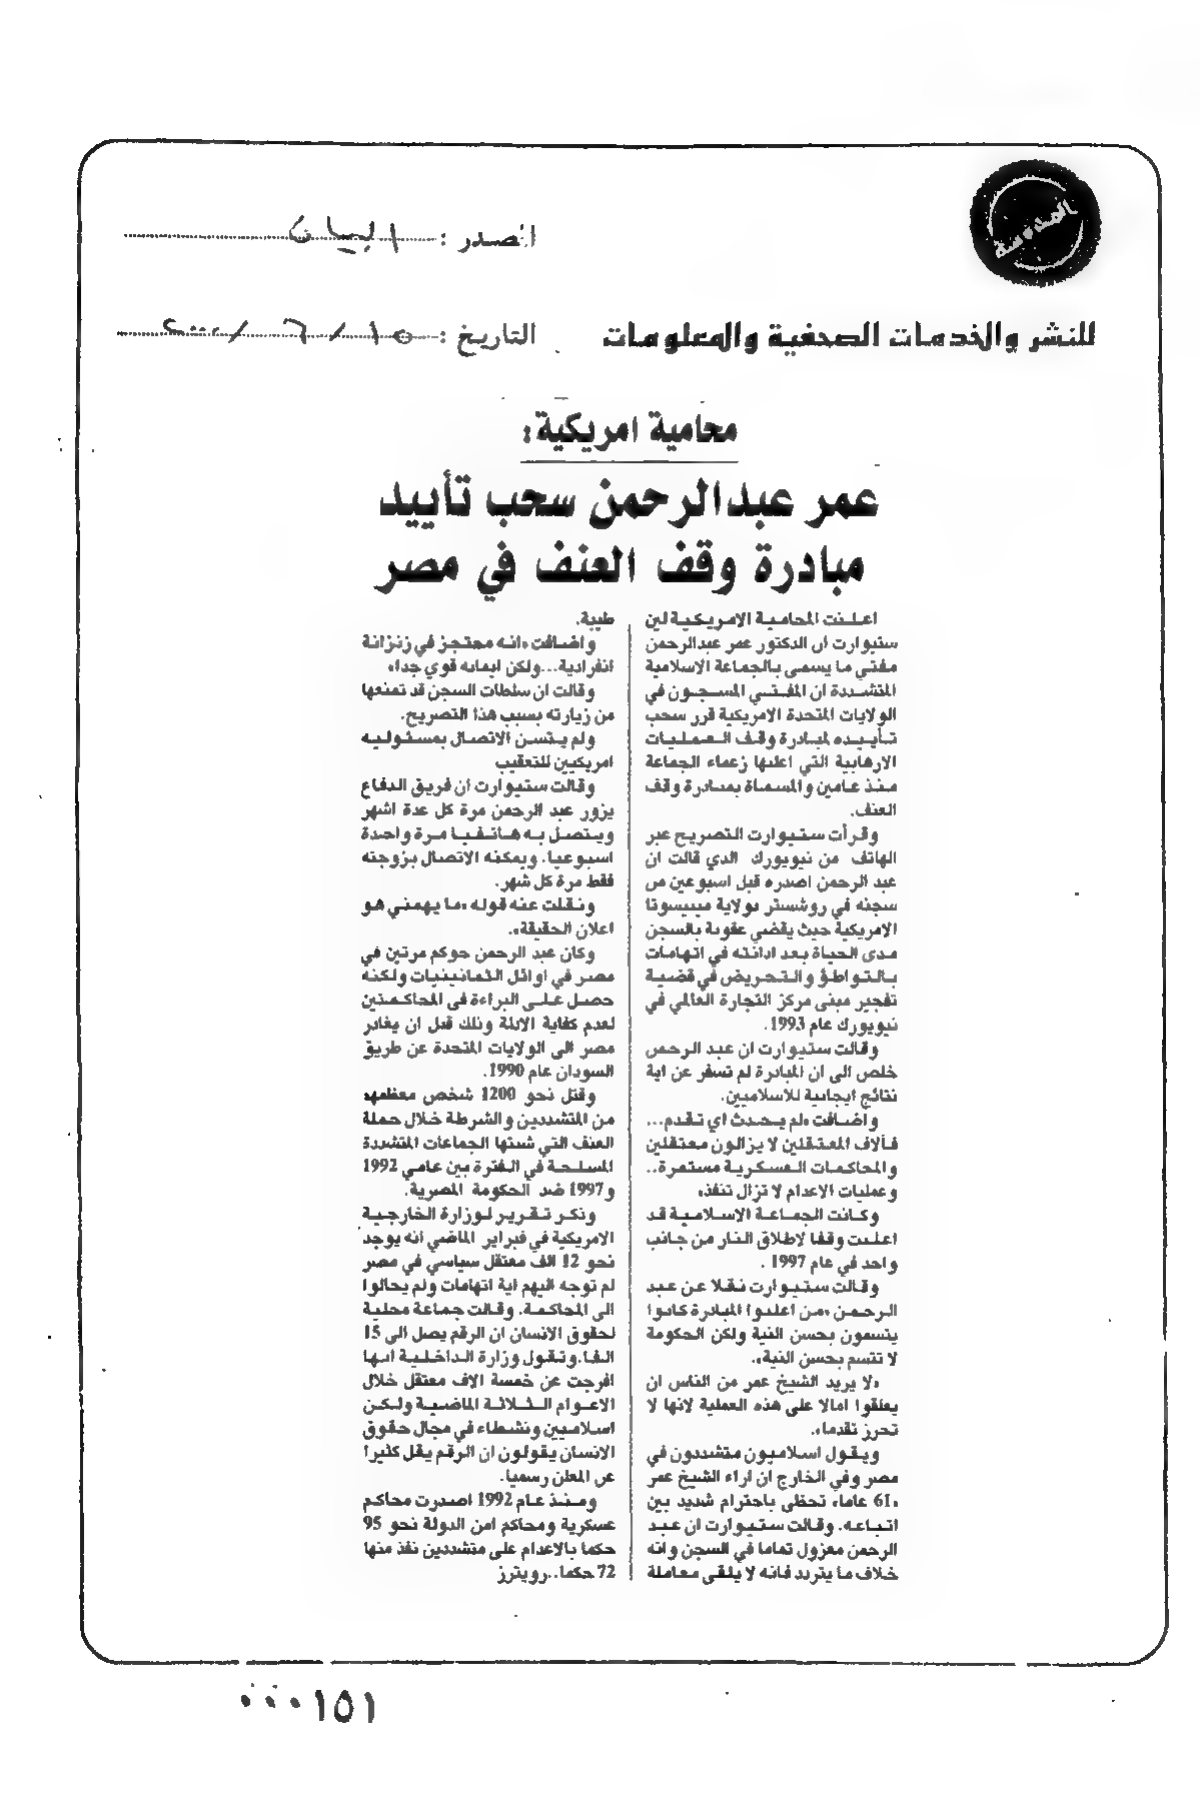 المصدر : البيان
للنشر والخدمات الصحفية والمعلومات
التاريخ : ١٥ / ٦ / ٢٠٠٠
محامية امريكية:
عمر عبدالرحمن سحب تأييد
مبادرة وقف العنف في مصر
اعلنت المحامية الامريكية لين
ستيوارت ان الدكتور عمر عبدالرحمن
مفتي ما يسمى بالجماعة الاسلامية
المتشددة ان المفتي المسجون في
الولايات المتحدة الامريكية قرر سحب
تأييده لمبادرة وقف العمليات
الارهابية التي اعلنها زعماء الجماعة
منذ عامين والمسماة بمبادرة وقف
العنف.
وقرأت ستيوارت التصريح عبر
الهاتف من نيويورك الذي قالت ان
عبد الرحمن اصدره قبل اسبوعين من
سجنه في روشستر بولاية مينيسوتا
الامريكية حيث يقضي عقوبة بالسجن
مدى الحياة بعد ادانته في اتهامات
بالتواطؤ والتحريض في قضية
تفجير مبنى مركز التجارة العالمي في
نيويورك عام 1993.
وقالت ستيوارت ان عبد الرحمن
خلص الى ان المبادرة لم تسفر عن اية
نتائج ايجابية للاسلاميين.
واضافت «لم يحدث اي تقدم...
فآلاف المعتقلين لا يزالون معتقلين
والمحاكمات العسكرية مستمرة..
وعمليات الاعدام لا تزال تنفذ»
وكانت الجماعة الاسلامية قد
اعلنت وقفا لاطلاق النار من جانب
واحد في عام 1997 .
وقالت ستيوارت نقلا عن عبد
الرحمن «من اعلنوا المبادرة كانوا
يتسمون بحسن النية ولكن الحكومة
لا تتسم بحسن النية».
«لا يريد الشيخ عمر من الناس ان
يعلقوا امالا على هذه العملية لانها لا
تحرز تقدما».
ويقول اسلاميون متشددون في
مصر وفي الخارج ان اراء الشيخ عمر
«61 عاما» تحظى باحترام شديد بين
اتباعه. وقالت ستيوارت ان عبد
الرحمن معزول تماما في السجن وانه
خلاف ما يتردد فانه لا يلقى معاملة
طيبة.
واضافت «انه محتجز في زنزانة
انفرادية...ولكن ايمانه قوي جدا»
وقالت ان سلطات السجن قد تمنعها
من زيارته بسبب هذا التصريح.
ولم يتسن الاتصال بمسئوليه
امريكيين للتعقيب
وقالت ستيوارت ان فريق الدفاع
يزور عبد الرحمن مرة كل عدة اشهر
ويتصل به هاتفيا مرة واحدة
اسبوعيا. ويمكنه الاتصال بزوجته
فقط مرة كل شهر.
ونقلت عنه قوله «ما يهمني هو
اعلان الحقيقة».
وكان عبد الرحمن حوكم مرتين في
مصر في اوائل الثمانينيات ولكنه
حصل على البراءة في المحاكمتين
لعدم كفاية الادلة وذلك قبل ان يغادر
مصر الى الولايات المتحدة عن طريق
السودان عام 1990.
وقتل نحو 1200 شخص معظمهم
من المتشددين والشرطة خلال حملة
العنف التي شنتها الجماعات المتشددة
المسلحة في الفترة بين عامي 1992
و1997 ضد الحكومة المصرية.
وذكر تقرير لوزارة الخارجية
الامريكية في فبراير الماضي انه يوجد
نحو 12 الف معتقل سياسي في مصر
لم توجه اليهم اية اتهامات ولم يحالوا
الى المحاكمة. وقالت جماعة محلية
لحقوق الانسان ان الرقم يصل الى 15
الفا.وتقول وزارة الداخلية انها
افرجت عن خمسة الاف معتقل خلال
الاعوام الثلاثة الماضية ولكن
اسلاميين ونشطاء في مجال حقوق
الانسان يقولون ان الرقم يقل كثيرا
عن المعلن رسميا.
ومنذ عام 1992 اصدرت محاكم
عسكرية ومحاكم امن الدولة نحو 95
حكما بالاعدام على متشددين نفذ منها
72 حكما..رويترز
٠٠٠١٥١